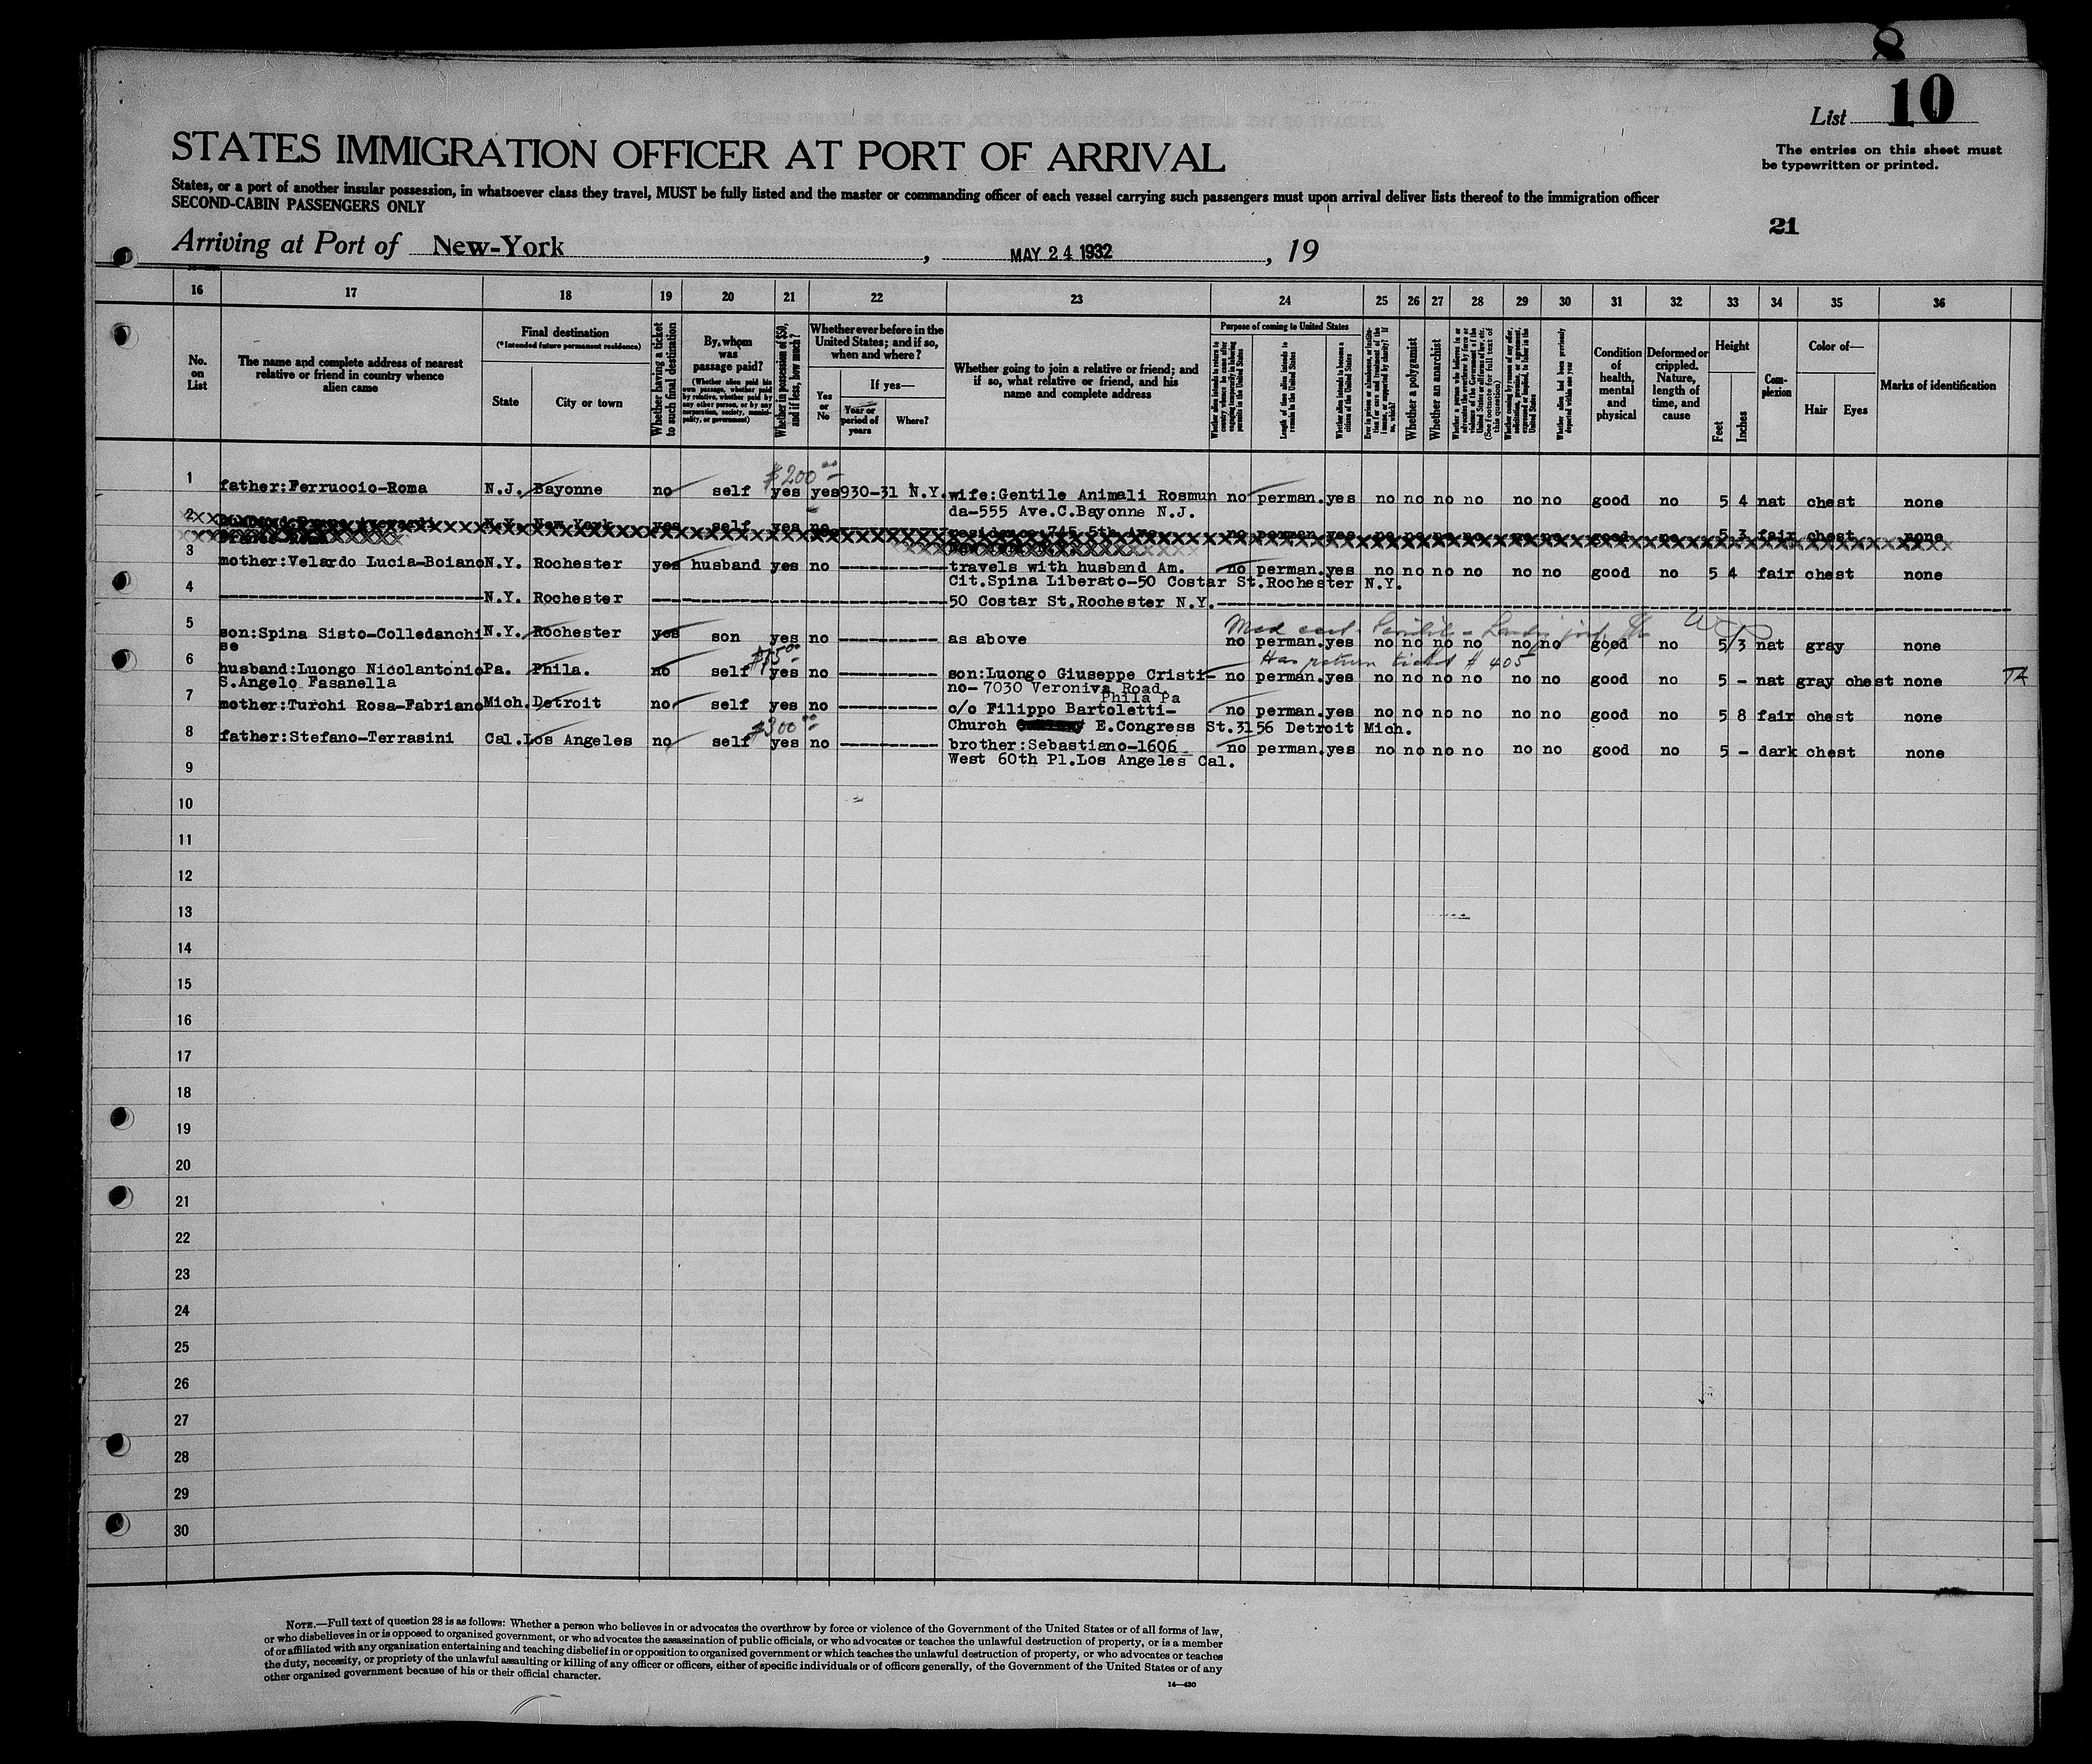 8
List 10
STATES IMMIGRATION OFFICER AT PORT OF ARRIVAL
The entries on this sheet must
be typewritten or printed.
States, or a port of another insular possession, in whatsoever class they travel, MUST be fully listed and the master or commanding officer of each vessel carrying such passengers must upon arrival deliver lists thereof to the immigration officer
SECOND-CABIN PASSENGERS ONLY
21
Arriving at Port of New-York, MAY 24 1932, 19
16 17 18 19 20 21 22 23 24 25 26 27 28 29 30 31 32 33 34 35 36
No. on List
The name and complete address of nearest relative or friend in country whence alien came
Final destination
(*Intended future permanent residence)
State
City or town
Whether having a ticket to such final destination
By whom was passage paid?
(Whether alien paid his own passage, whether paid by relative, whether paid by any other person, or by any corporation, society, municipality, or government)
Whether in possession of $50, and if less, how much?
Whether ever before in the United States; and if so, when and where?
Yes or No
If yes—
Year or period of years
Where?
Whether going to join a relative or friend; and if so, what relative or friend, and his name and complete address
Purpose of coming to United States
Length of time alien intends to remain in the United States
Whether alien intends to become a citizen of the United States
Whether a polygamist
Whether an anarchist
Condition of health, mental and physical
Deformed or crippled. Nature, length of time, and cause
Height
Feet
Inches
Complexion
Color of—
Hair
Eyes
Marks of identification
$200 00
1 father:Ferruccio-Roma N.J. Bayonne no self yes yes 930-31 N.Y. wife:Gentile Animali Rosmun no perman. yes no no no no no no good no 5 4 nat chest none
da-555 Ave.C.Bayonne N.J.
2 N.Y. New York yes self yes no residence 745 5th Ave. no perman. yes no no no no no no good no 5 3 fair chest none
3 mother:Velardo Lucia-Boiano N.Y. Rochester yes husband yes no ---------- travels with husband Am. no perman. yes no no no no no no good no 5 4 fair chest none
Cit.Spina Liberato-50 Costar St.Rochester N.Y.
4 ---------- N.Y. Rochester ---------- 50 Costar St.Rochester N.Y. ----------
5 son:Spina Sisto-Colledanchi N.Y. Rochester yes son yes no ---------- as above no perman. yes no no no no no no good no 5 3 nat gray none
se
$15 00
Has return ticket # 405
6 husband:Luongo Nicolantonio Pa. Phila. no self yes no ---------- son:Luongo Giuseppe Cristi- no perman. yes no no no no no no good no 5 - nat gray chest none
S.Angelo Fasanella no- 7030 Veroniva Road,
Phila Pa
7 mother:Turchi Rosa-Fabriano Mich. Detroit no self yes no ---------- c/o Filippo Bartoletti- no perman. yes no no no no no no good no 5 8 fair chest none
Church E.Congress St.3156 Detroit Mich.
$300 00
8 father:Stefano-Terrasini Cal. Los Angeles no self yes no ---------- brother:Sebastiano-1606 no perman. yes no no no no no no good no 5 - dark chest none
West 60th Pl.Los Angeles Cal.
9
10
11
12
13
14
15
16
17
18
19
20
21
22
23
24
25
26
27
28
29
30
NOTE.—Full text of question 28 is as follows: Whether a person who believes in or advocates the overthrow by force or violence of the Government of the United States or of all forms of law,
or who disbelieves in or is opposed to organized government, or who advocates the assassination of public officials, or who advocates or teaches the unlawful destruction of property, or is a member
of or affiliated with any organization entertaining and teaching disbelief in or opposition to organized government or which teaches the unlawful destruction of property, or who advocates or teaches
the duty, necessity, or propriety of the unlawful assaulting or killing of any officer or officers, either of specific individuals or of officers generally, of the Government of the United States or of any
other organized government because of his or their official character.
14—430